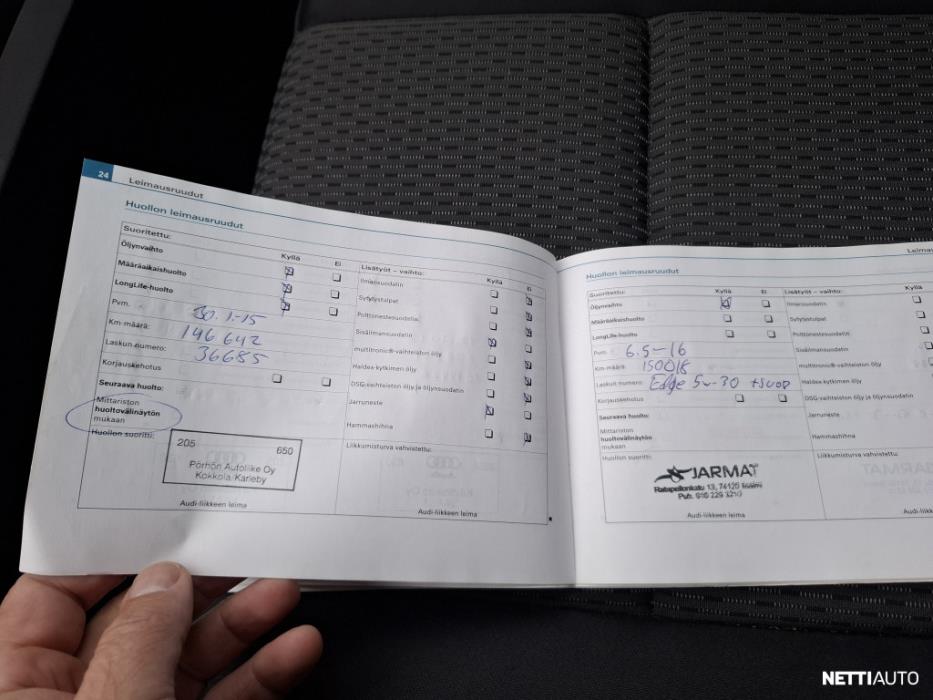 24
Leimausruudut
Huollon leimausruudut
Suoritettu:
Kyllä Ei
Öljynvaihto
Määräaikaishuolto
LongLife-huolto
Pvm. 30.1-15
Km-määrä: 146 642
Laskun numero: 36685
Korjauskehotus
Seuraava huolto:
Mittariston
huoltovälinäytön
mukaan
Huollon suoritti:
205 650
Pörhön Autoliike Oy
Kokkola/Karleby
Audi-liikkeen leima
Lisätyöt – vaihto:
Kyllä Ei
Ilmansuodatin
Sytytystulpat
Polttonestesuodatin
Sisäilmansuodatin
multitronic®-vaihteiston öljy
Haldex-kytkimen öljy
DSG-vaihteiston öljy ja öljynsuodatin
Jarruneste
Hammashihna
Liikkumisturva vahvistettu:
Audi-liikkeen leima
Huollon leimausruudut
Suoritettu:
Kyllä Ei
Öljynvaihto
Määräaikaishuolto
LongLife-huolto
Pvm. 6.5-16
Km-määrä: 150018
Laskun numero: Edge 5w-30 +suod
Korjauskehotus
Seuraava huolto:
Mittariston
huoltovälinäytön
mukaan
Huollon suoritti:
JARMAT
Ratapellonkatu 13, 74120 Iisalmi
Audi-liikkeen leima
Lisätyöt – vaihto:
Kyllä
Ilmansuodatin
Sytytystulpat
Polttonestesuodatin
Sisäilmansuodatin
multitronic®-vaihteiston öljy
Haldex-kytkimen öljy
DSG-vaihteiston öljy ja öljynsuodatin
Jarruneste
Hammashihna
Liikkumisturva vahvistettu:
NETTIAUTO